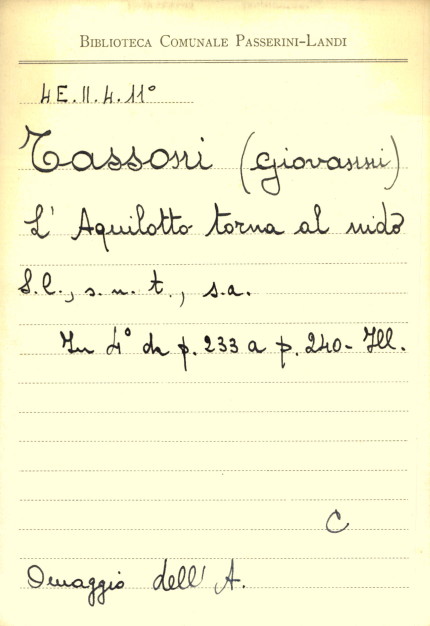 BIBLIOTECA COMUNALE PASSERINI-LANDI
4E.II.4.11°
Tassoni (Giovanni)
L' Aquilotto torna al nido
S.l., s.n.t., s.a.
In 4° da p. 233 a p. 240 - Ill.
C
Omaggio dell' A.